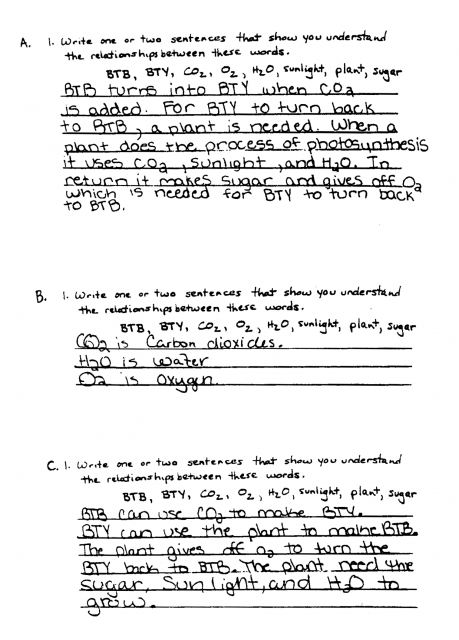 A. 1. Write one or two sentences that show you understand
the relationships between these words.
BTB, BTY, CO₂, O₂, H₂O, sunlight, plant, sugar
BTB turns into BTY when CO₂
is added. For BTY to turn back
to BTB, a plant is needed. When a
plant does the process of photosynthesis
it uses CO₂, sunlight, and H₂O. In
return it makes sugar and gives off O₂
which is needed for BTY to turn back
to BTB.
B. 1. Write one or two sentences that show you understand
the relationships between these words.
BTB, BTY, CO₂, O₂, H₂O, sunlight, plant, sugar
CO₂ is Carbon dioxides.
H₂O is water
O₂ is oxygen.
C. 1. Write one or two sentences that show you understand
the relationships between these words.
BTB, BTY, CO₂, O₂, H₂O, sunlight, plant, sugar
BTB can use CO₂ to make BTY.
BTY can use the plant to make BTB.
The plant gives off O₂ to turn the
BTY back to BTB. The plant need the
sugar, Sunlight, and H₂O to
grow.